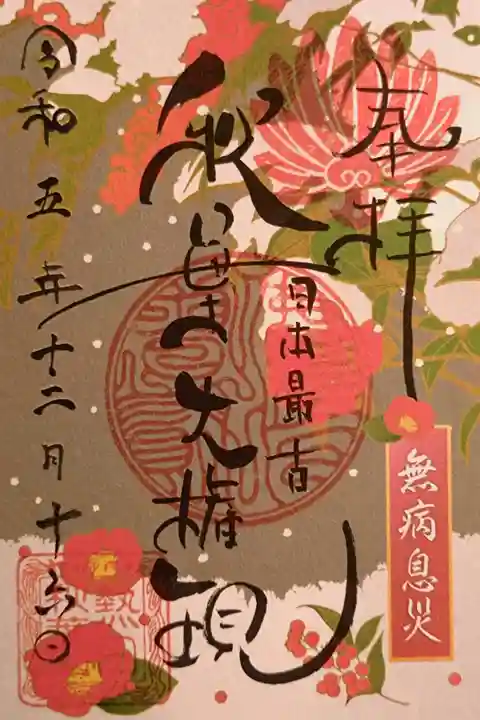 奉拝
無病息災
日本最古
秋葉大権現
令和五年十二月十六日